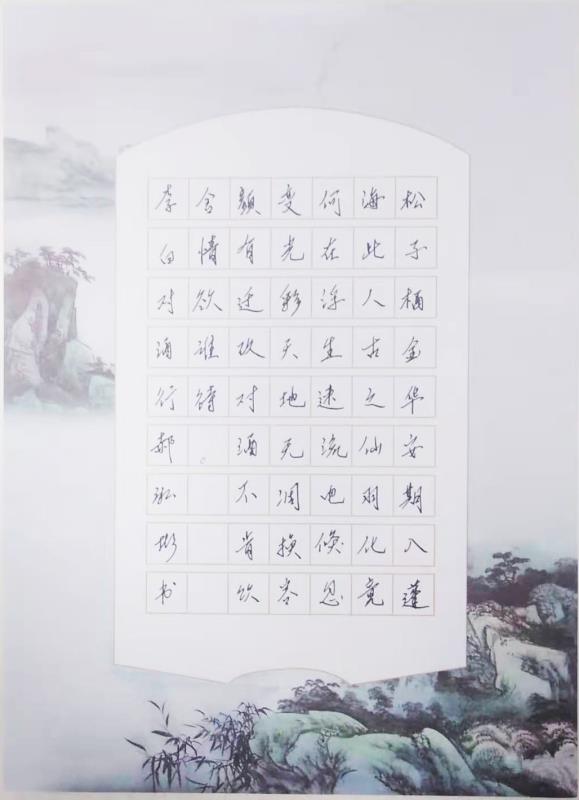 松子栖金华安期入蓬
海此人古之仙羽化竟
何在浮生速流电倏忽
变光彩天地无凋换容
颜有迁改对酒不肯饮
含情欲谁待。
李白对酒行郝书